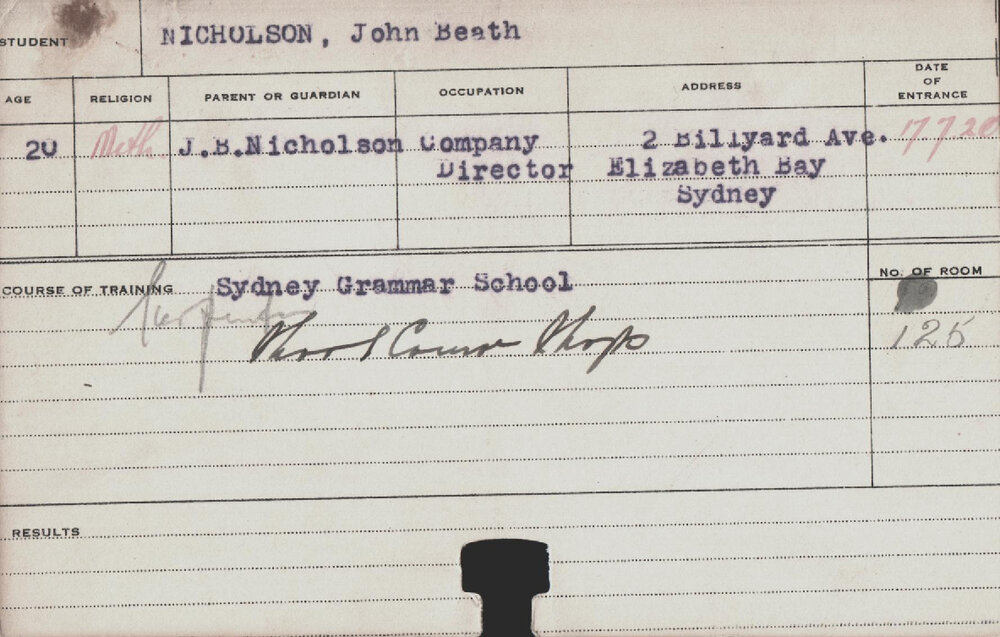 STUDENT NICHOLSON, John Beath
AGE RELIGION PARENT OR GUARDIAN OCCUPATION ADDRESS DATE OF ENTRANCE
20 Meth. J.B.Nicholson Company 2 Billyard Ave. 17 7 20
Director Elizabeth Bay
Sydney
COURSE OF TRAINING Sydney Grammar School No. OF ROOM
Carpentry
Short Course Shops 125
RESULTS